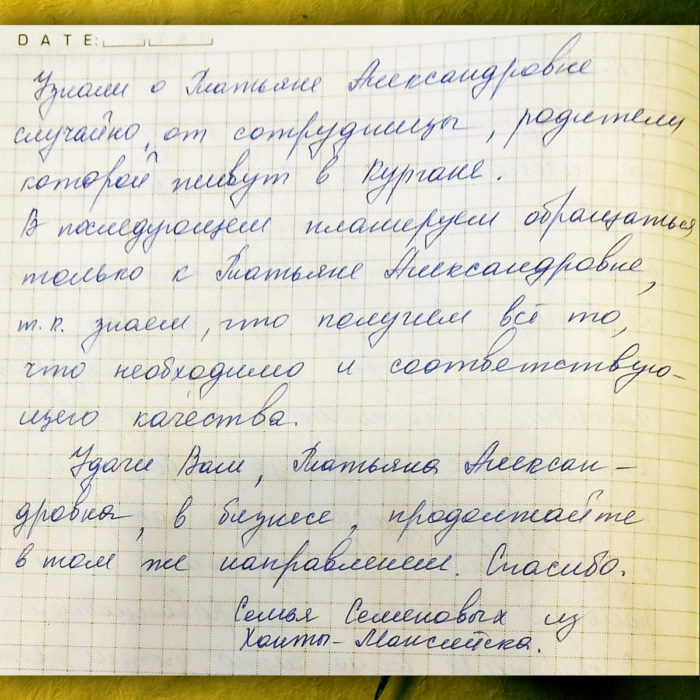 DATE:
Узнали о Татьяне Александровне
случайно, от сотрудницы, родители
которой живут в Кургане.
В последующем планируем обращаться
только к Татьяне Александровне,
т.к. знаем, что получим всё то,
что необходимо и соответствую-
щего качества.
Удачи Вам, Татьяна Алексан-
дровна, в бизнесе, продолжайте
в том же направлении. Спасибо.
Семья Семеновых из
Ханты-Мансийска.